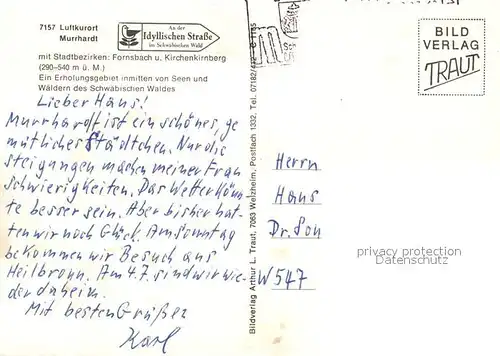 7157 Luftkurort
Murrhardt
An der
Idyllischen Straße
im Schwäbischen Wald
mit Stadtbezirken: Fornsbach u. Kirchenkirnberg
(290–540 m ü. M.)
Ein Erholungsgebiet inmitten von Seen und
Wäldern des Schwäbischen Waldes
Lieber Hans!
Murrhardt ist ein schönes, ge
mütliches Städtchen. Nur die
Steigungen machen meiner Frau
Schwierigkeiten. Das Wetter könn
te besser sein. Aber bisher hat-
ten wir noch Glück. Am Sonntag
bekommen wir Besuch aus
Heilbronn. Am 4.7. sind wir wie-
der daheim.
Mit besten Grüßen
Karl
Bildverlag Arthur L. Traut, 7063 Welzheim, Postfach 1332, Tel. 07182/
BILD
VERLAG
TRAUT
Herrn
Hans
Dr. Son
W 547
privacy protection
Datenschutz